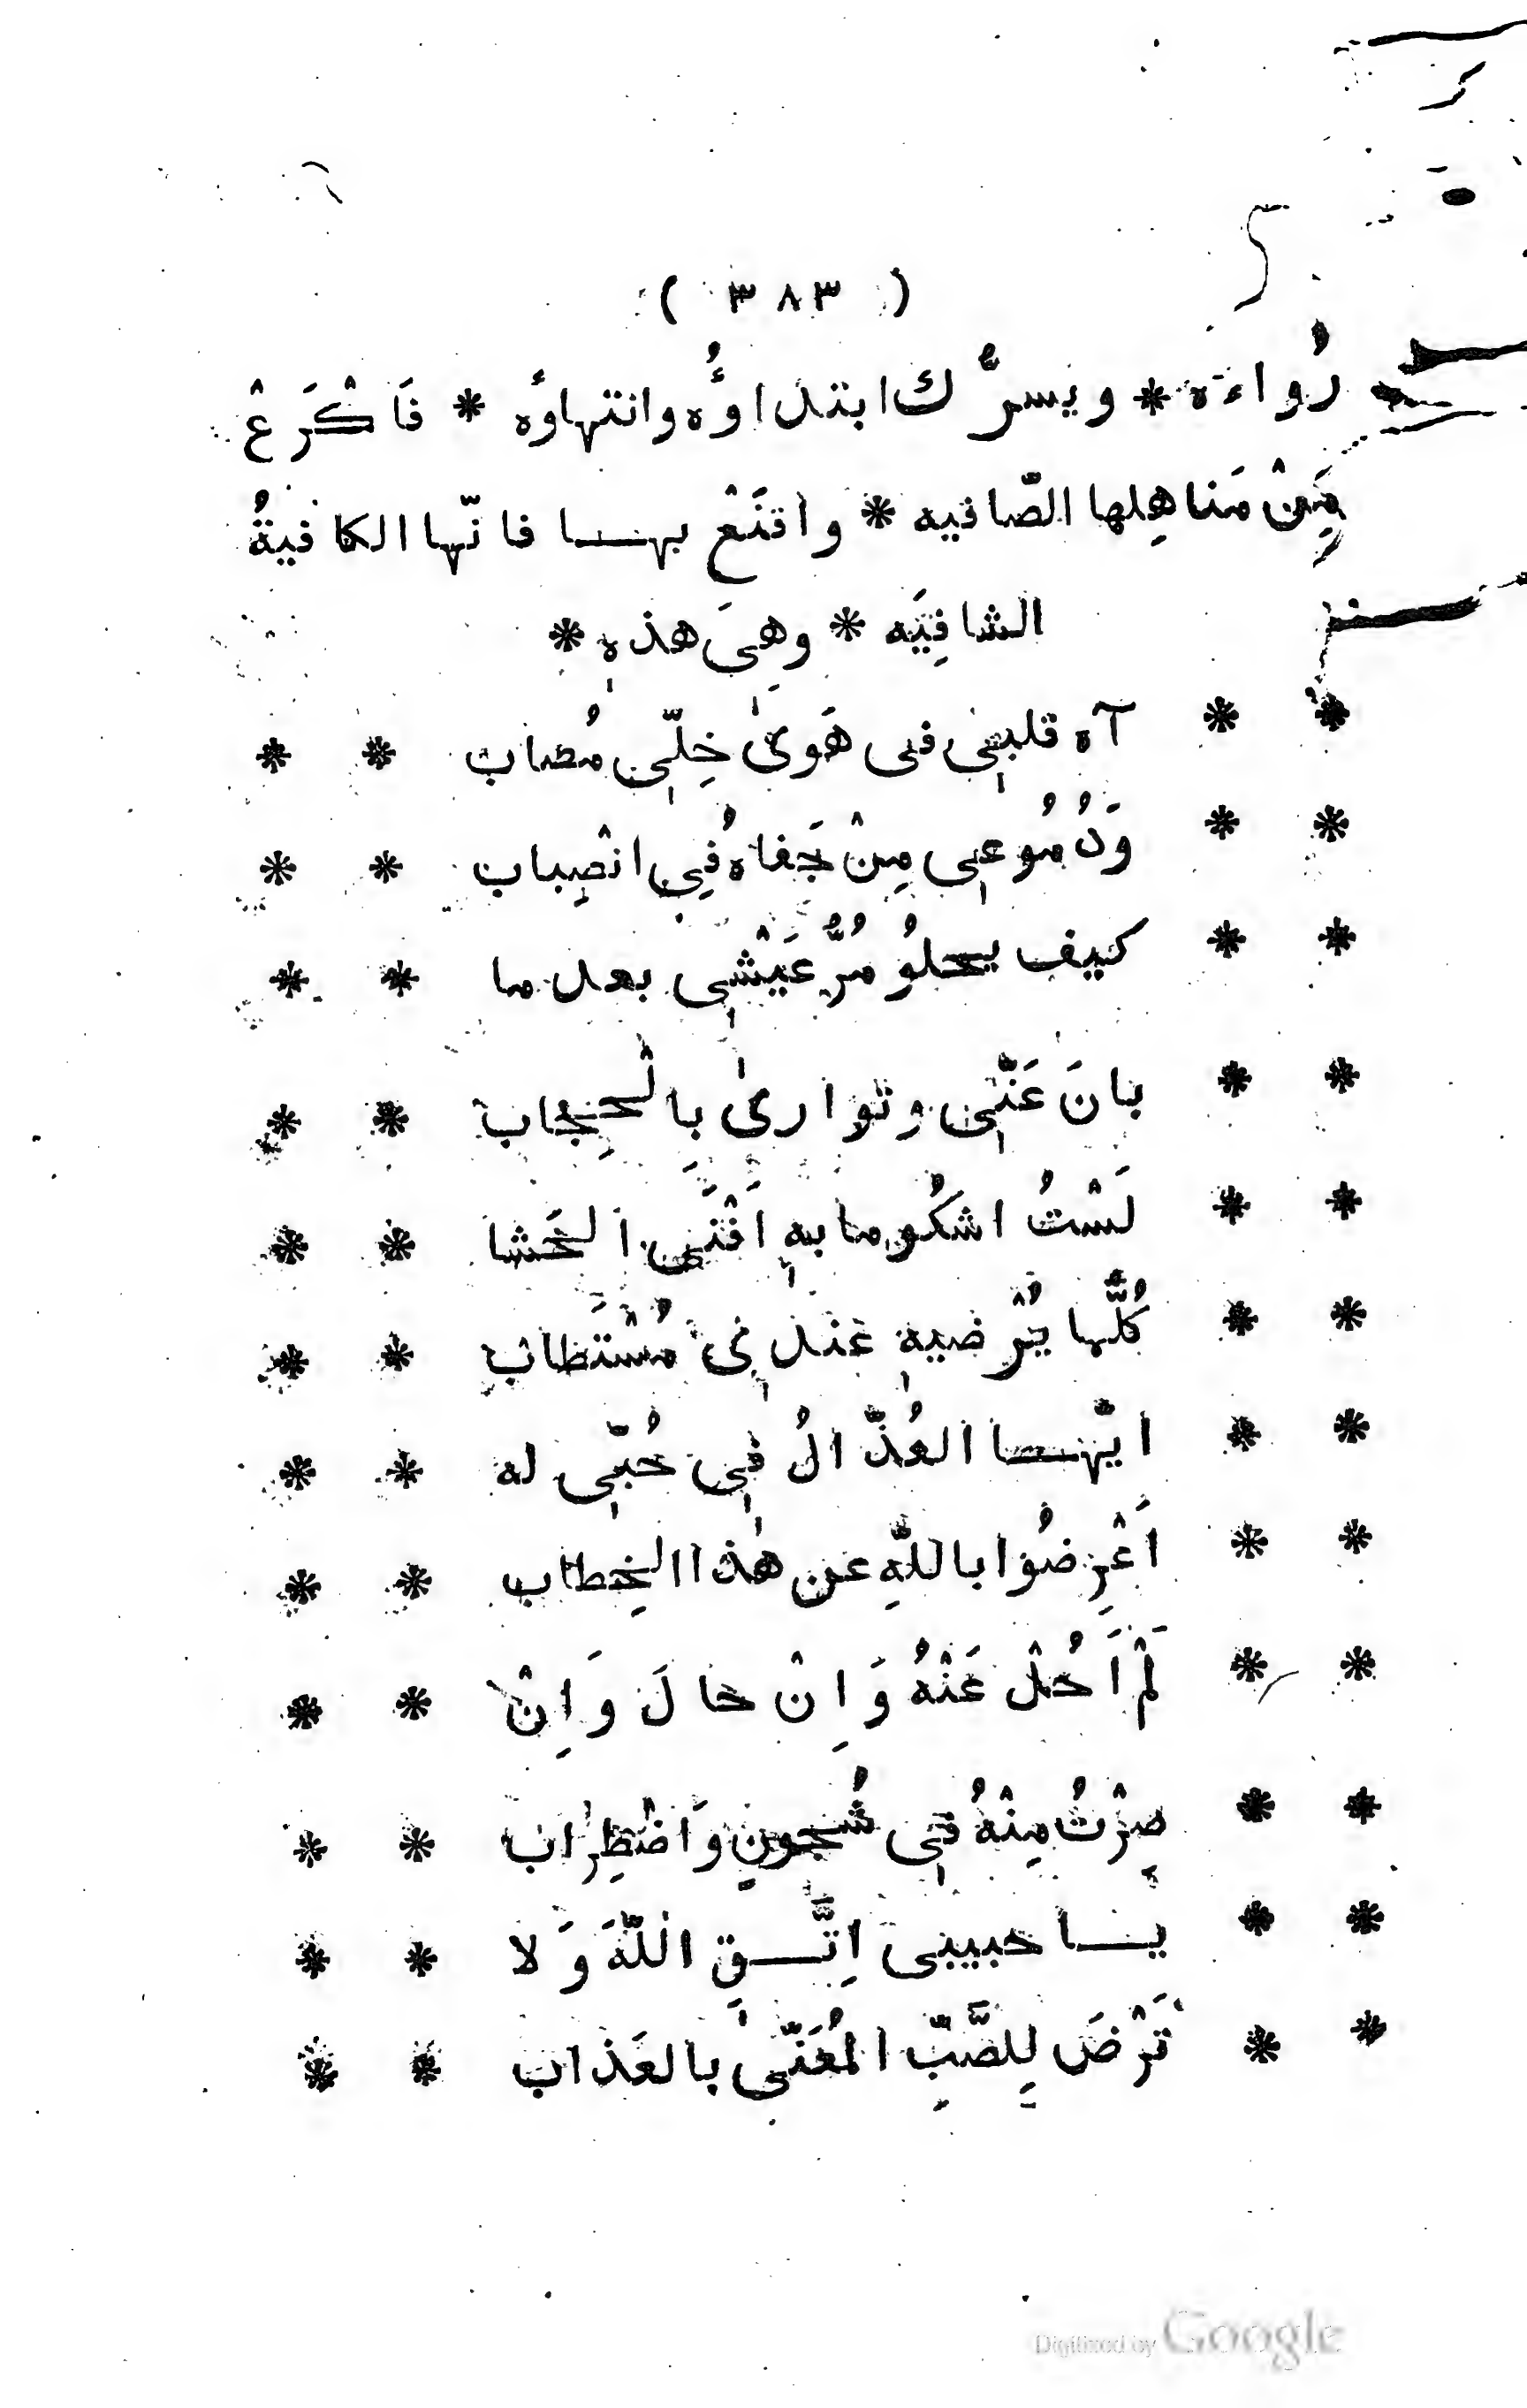 ( ٣٨٣ )
رُواءَه * ويسرُّك ابتداؤُه وانتهاؤه * فَاكْرَعْ
مِنْ مَناهِلها الصّافيه * واقنَعْ بهـــا فانّها الكافيةُ
الشافِيَه * وهىَ هذهِ *
* * آه قلبى فى هَوىٰ خِلّى مُصاب * *
* * وَدُمُوعى مِنْ جَفاهُ فِى انْصِباب * *
* * كيف يحلوُ مُرُّ عَيْشى بعد ما * *
* * بانَ عَنّى وتوارىٰ بِالْحِجاب * *
* * لَسْتُ اشكُو ما بهِ اَفْنَى الحَشا * *
* * كُلُّما يُرْضيهِ عندى مُسْتَطاب * *
* * ايّهـــا العُذّالُ فى حُبّى له * *
* * اَعْرِضُوا باللّهِ عن هٰذا الخِطاب * *
* * لَمْ اَحُلْ عَنْهُ وَاِنْ حالَ وَاِنْ * *
* * صِرْتُ مِنْهُ فى شُجونٍ وَاضْطِراب * *
* * يـــا حبيبى اِتَّـــقِ اللّهَ وَلا * *
* * تَرْضَ لِلصَّبِّ المُعَنّىٰ بالعَذاب * *
Digitized by Google